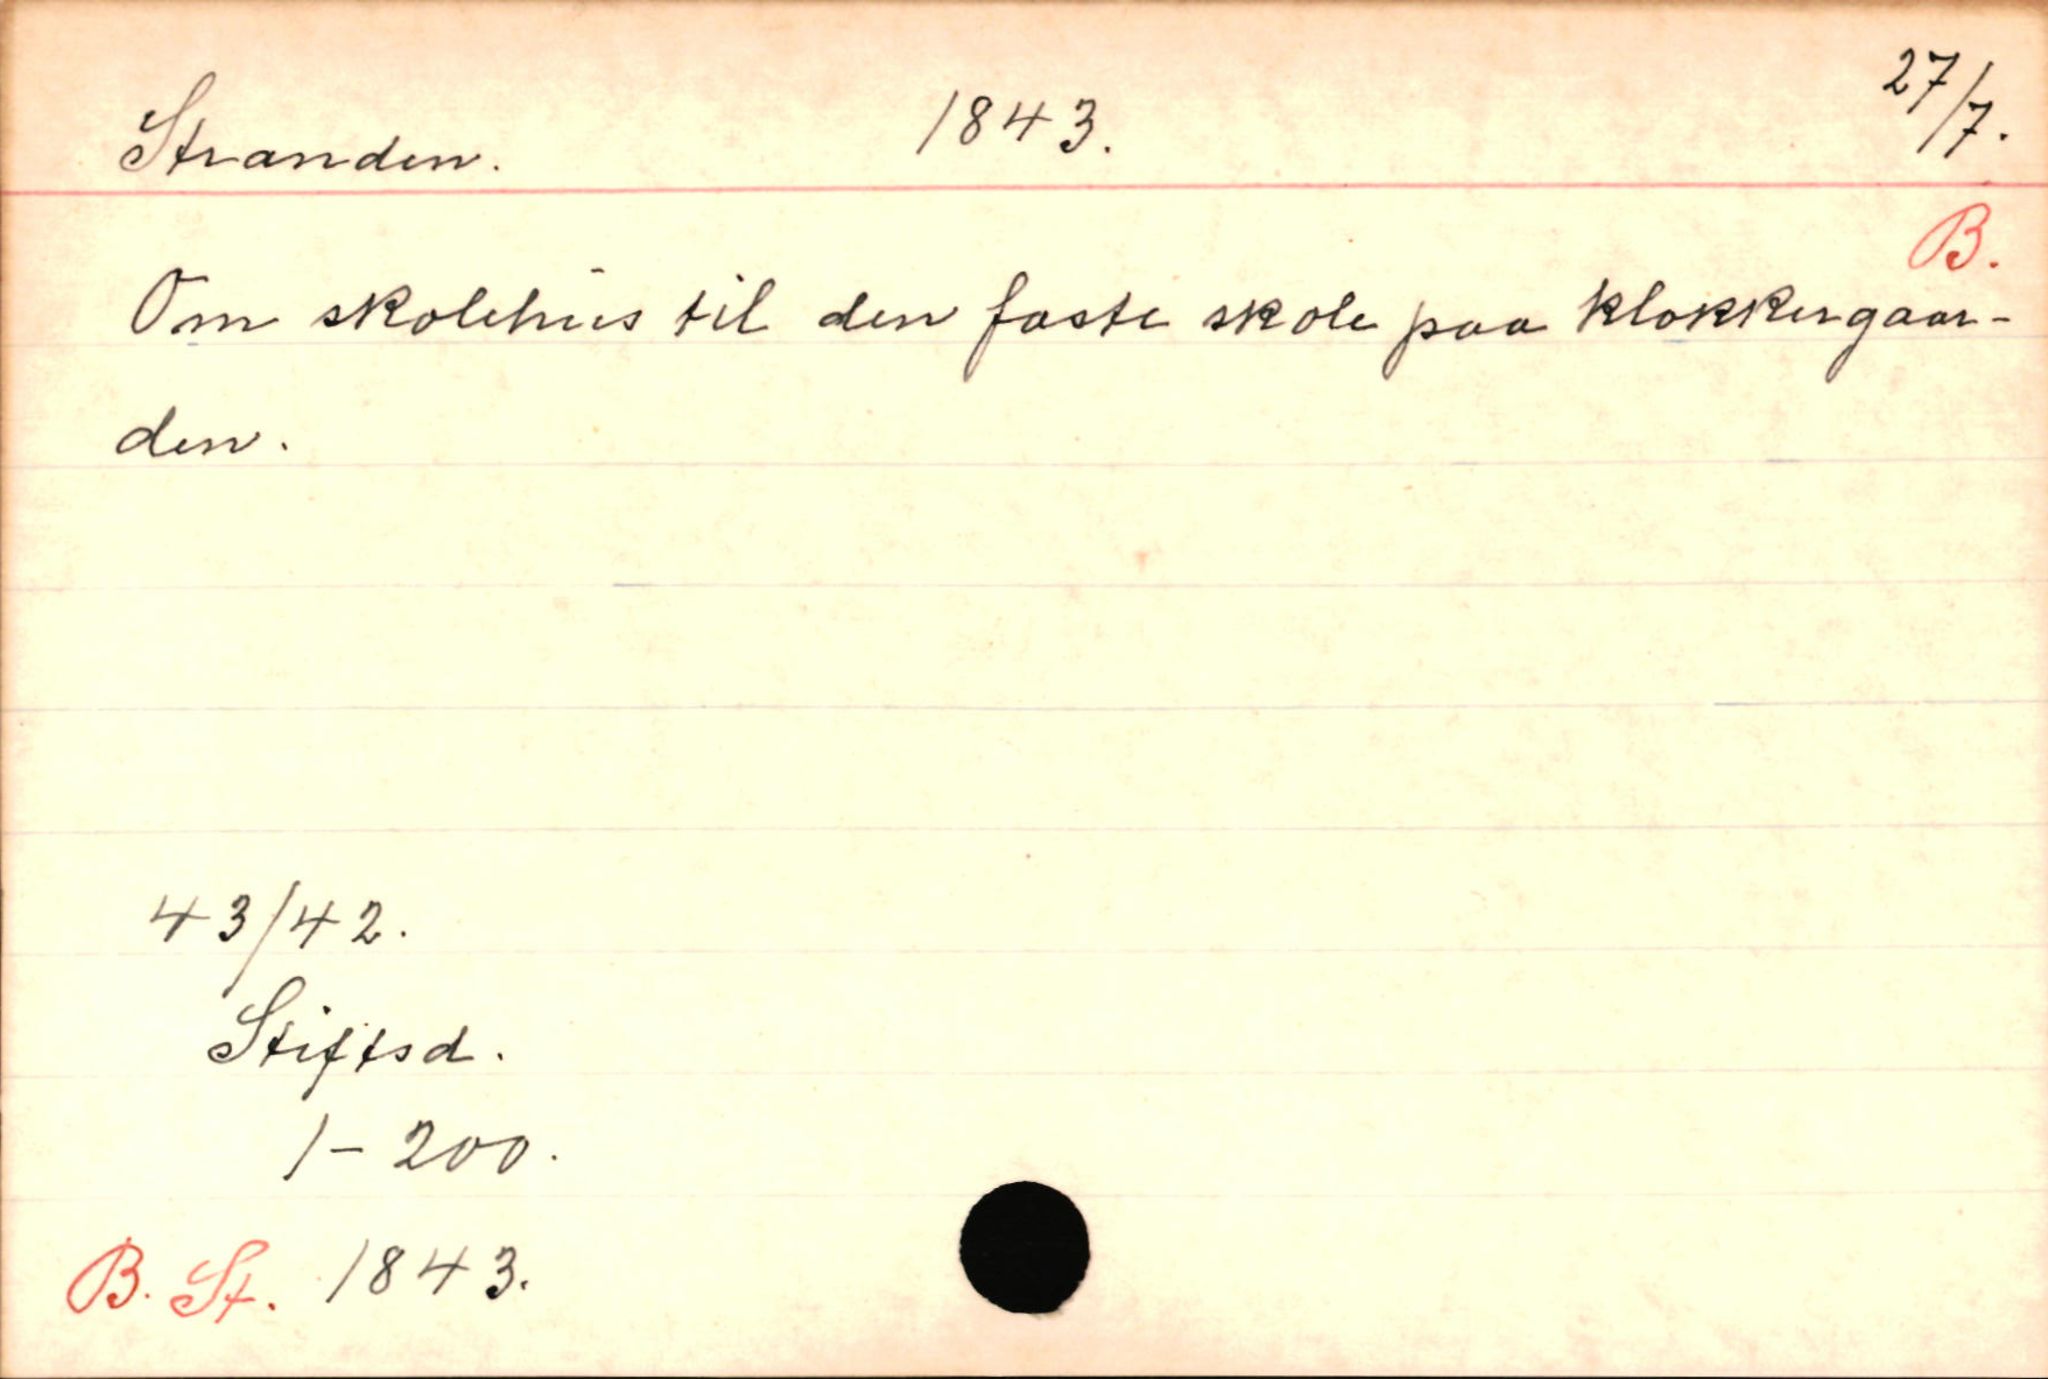 Stranden. 1843. 27/7.
B.
Om skolehus til den faste skole paa klokkergaar-
den.
43/42.
Stiftsd.
1-200.
B. St. 1843.